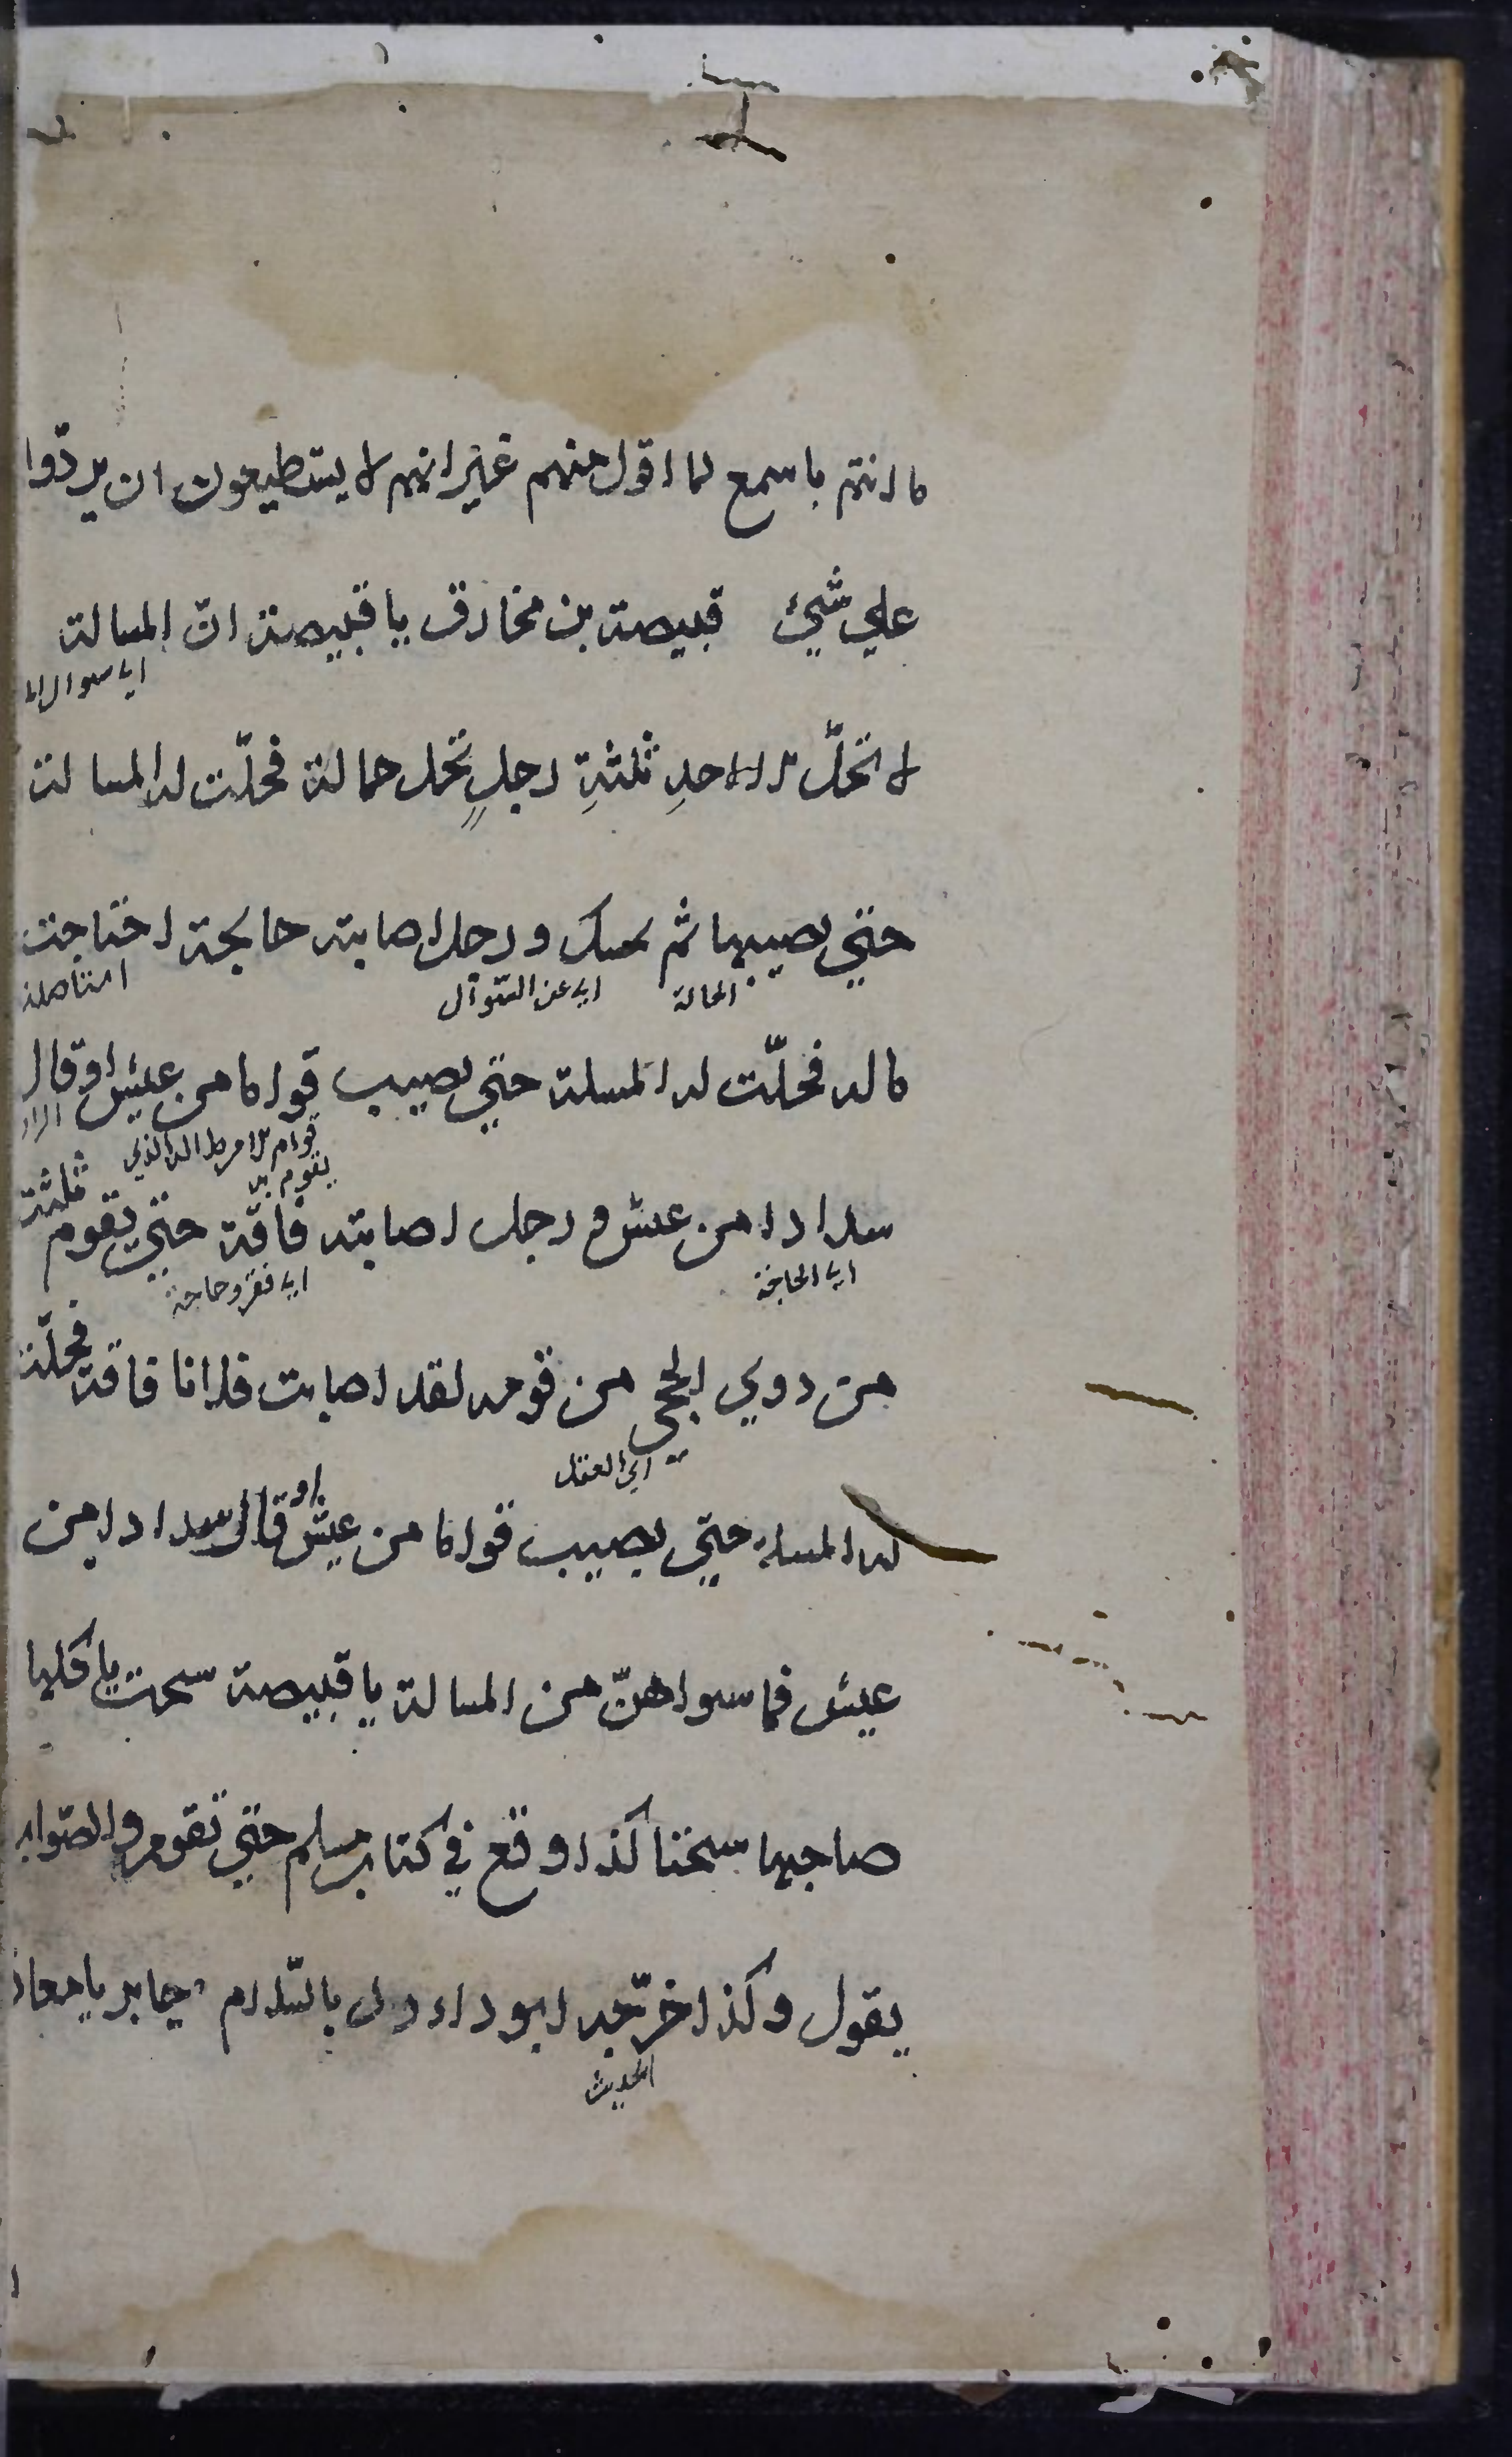 ما انتم باسمع لما اقول منهم غير انهم لا يستطيعون ان يردّوا
علي شيئ قبيصة بن مخارق يا قبيصة انّ المسالة
اي سوال
لا تحلّ الا لاحدِ ثلثةِ رجلٍ تحمل حمالة فحلّت له المسالة
حتي يصيبها ثم يمسك ورجل اصابته جايحة اجتاحت
الحمالة اي عن السّوال استاصلة
ماله فحلّت له المسلة حتي يصيب قواما من عيش او قال
قوام الامر الذي
يقوم به
سدادا من عيش ورجل اصابته فاقة حتي يقوم ثلثة
اي الحاجة اي فقر وحاجة
من ذوي الحجى من قومه لقد اصابت فلانا فاقة فحلّت
اي العقل
له المسلة حتي يصيب قواما من عيش او قال سدادا من
عيش فما سواهنّ من المسالة يا قبيصة سحت ياكلها
صاحبها سحتا كذا وقع في كتاب مسلم حتي تقوم والصّواب
يقول وكذا خرّجه ابو داود باللام جابر يا معاذ
الحديث